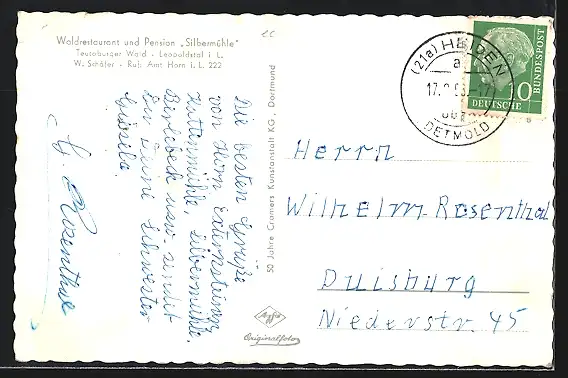 Waldrestaurant und Pension „Silbermühle"
Teutoburger Wald - Leopoldstal i. L.
W. Schäfer - Ruf: Amt Horn i. L. 222
Die besten Grüße
von Horn Externsteine,
Kattenmühle, Silbermühle,
Berlebeck usw.
Deine Schwester
Gisela
G. Rosenthal
50 Jahre Cramers Kunstanstalt KG., Dortmund
Agfa
Originalfoto
(21a) HEIDEN
a
DETMOLD
10
DEUTSCHE
BUNDESPOST
Herrn
Wilhelm Rosenthal
Duisburg
Niederstr. 45